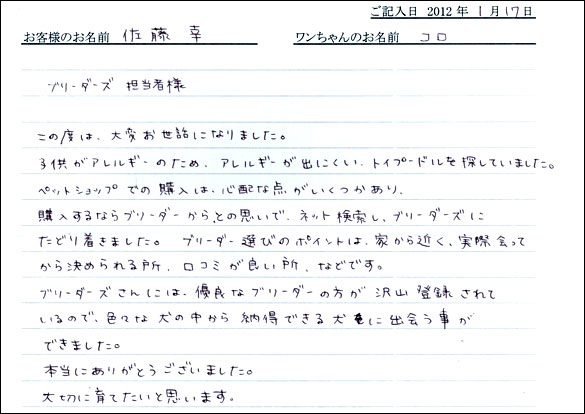 ご記入日 2012年 1月 17日
お客様のお名前 佐藤 幸 ワンちゃんのお名前 コロ
ブリーダーズ 担当者様
この度は、大変お世話になりました。
子供がアレルギーのため、アレルギーが出にくい、トイプードルを探していました。
ペットショップでの購入は、心配な点がいくつかあり、
購入するならブリーダーからとの思いで、ネット検索し、ブリーダーズに
たどり着きました。 ブリーダー選びのポイントは、家から近く、実際会って
から決められる所、口コミが良い所、などです。
ブリーダーズさんには、優良なブリーダーの方が沢山登録されて
いるので、色々な犬の中から納得できる犬に出会う事が
できました。
本当にありがとうございました。
大切に育てたいと思います。